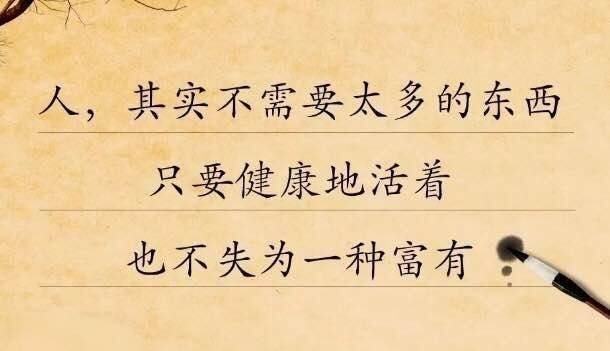 人，其实不需要太多的东西
只要健康地活着
也不失为一种富有